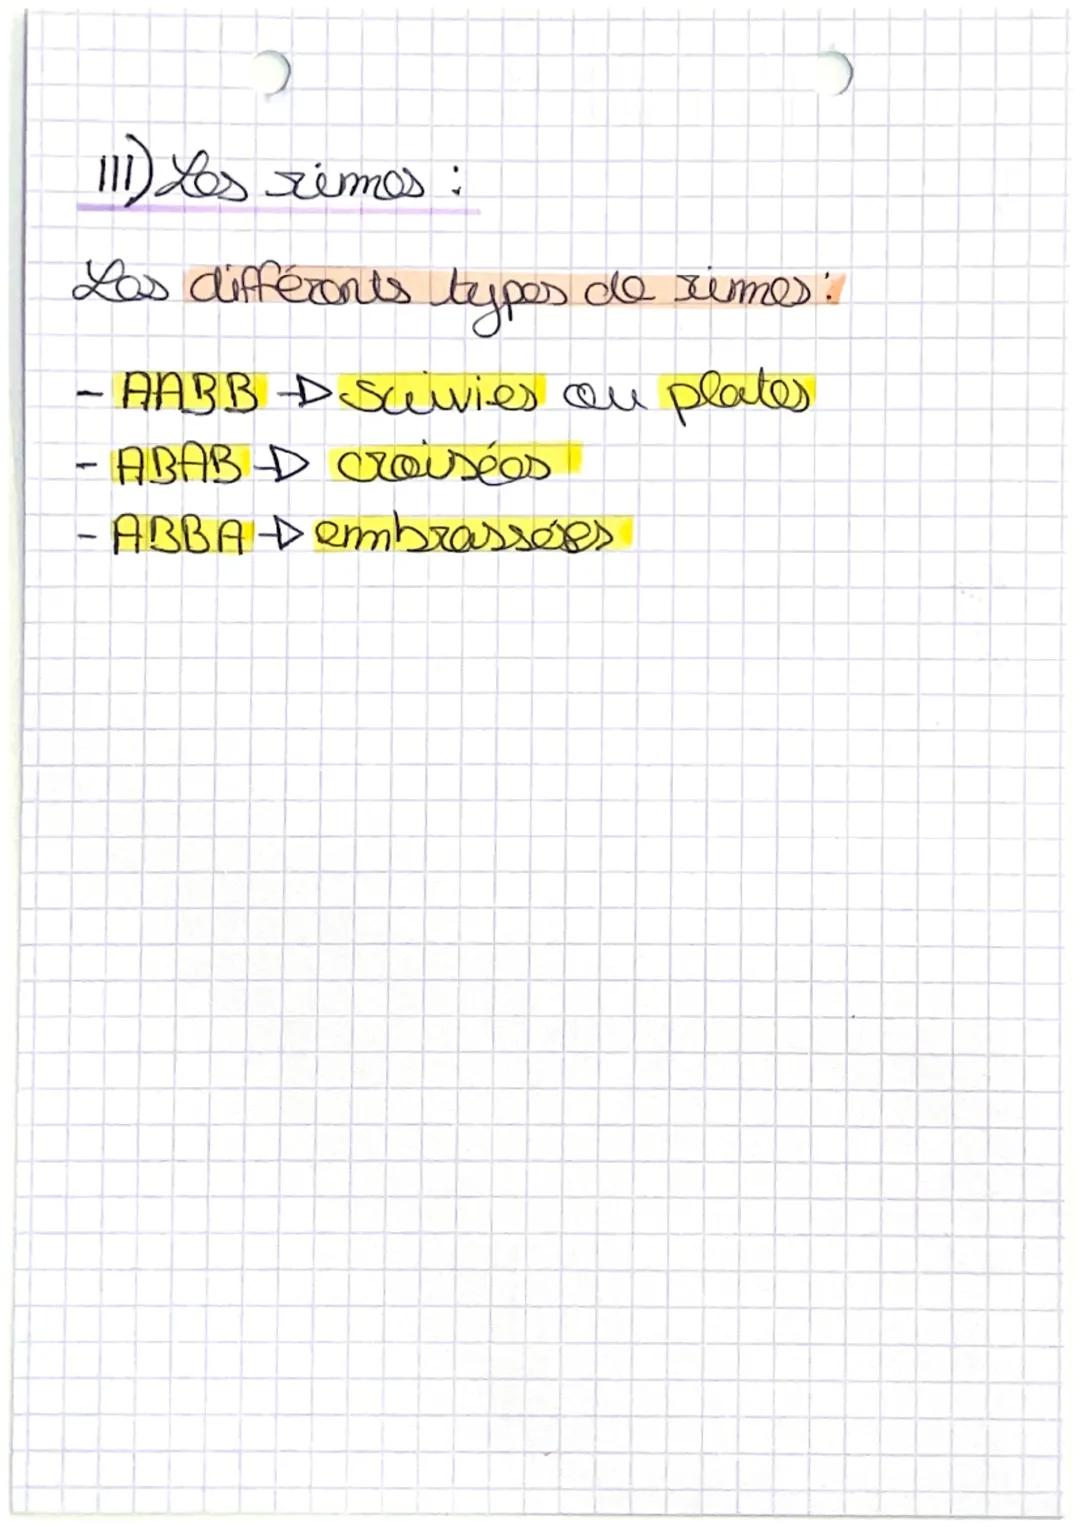 III) Les rimes :
Les différents types de rimes :
- AABB → suivies ou plates
- ABAB → croisées
- ABBA → embrassées